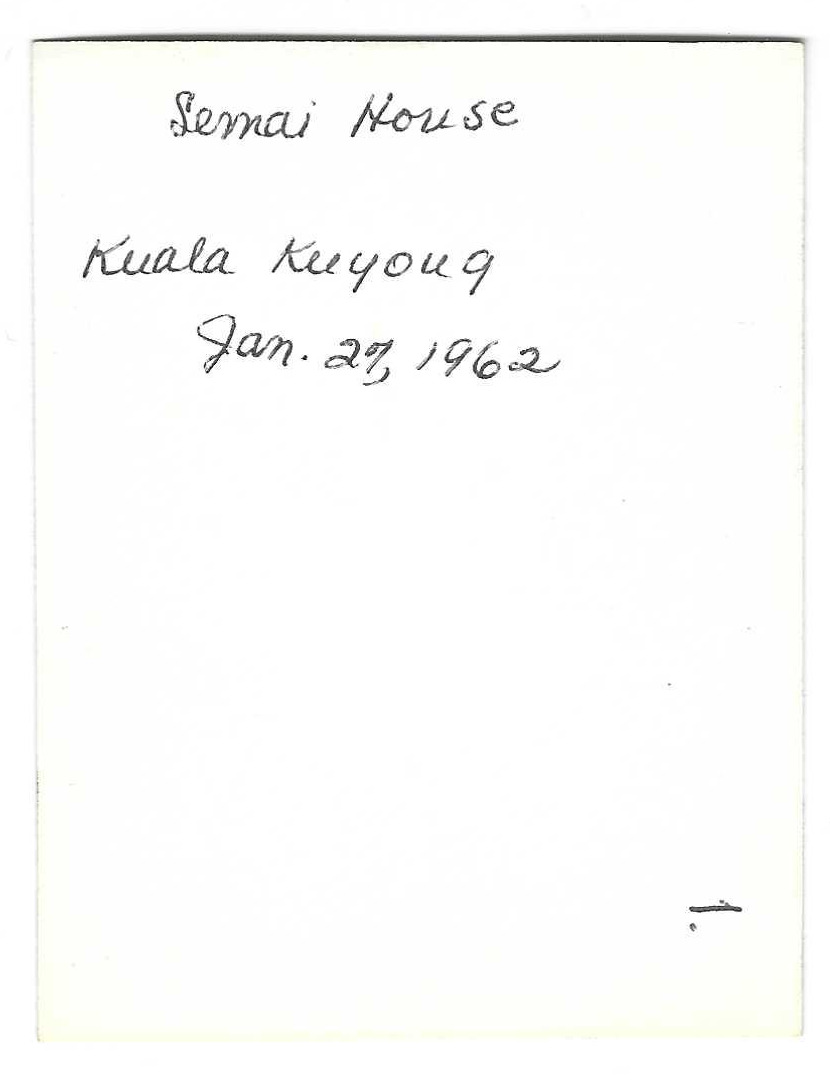 Semai House
Kuala Kuyong
Jan. 27, 1962